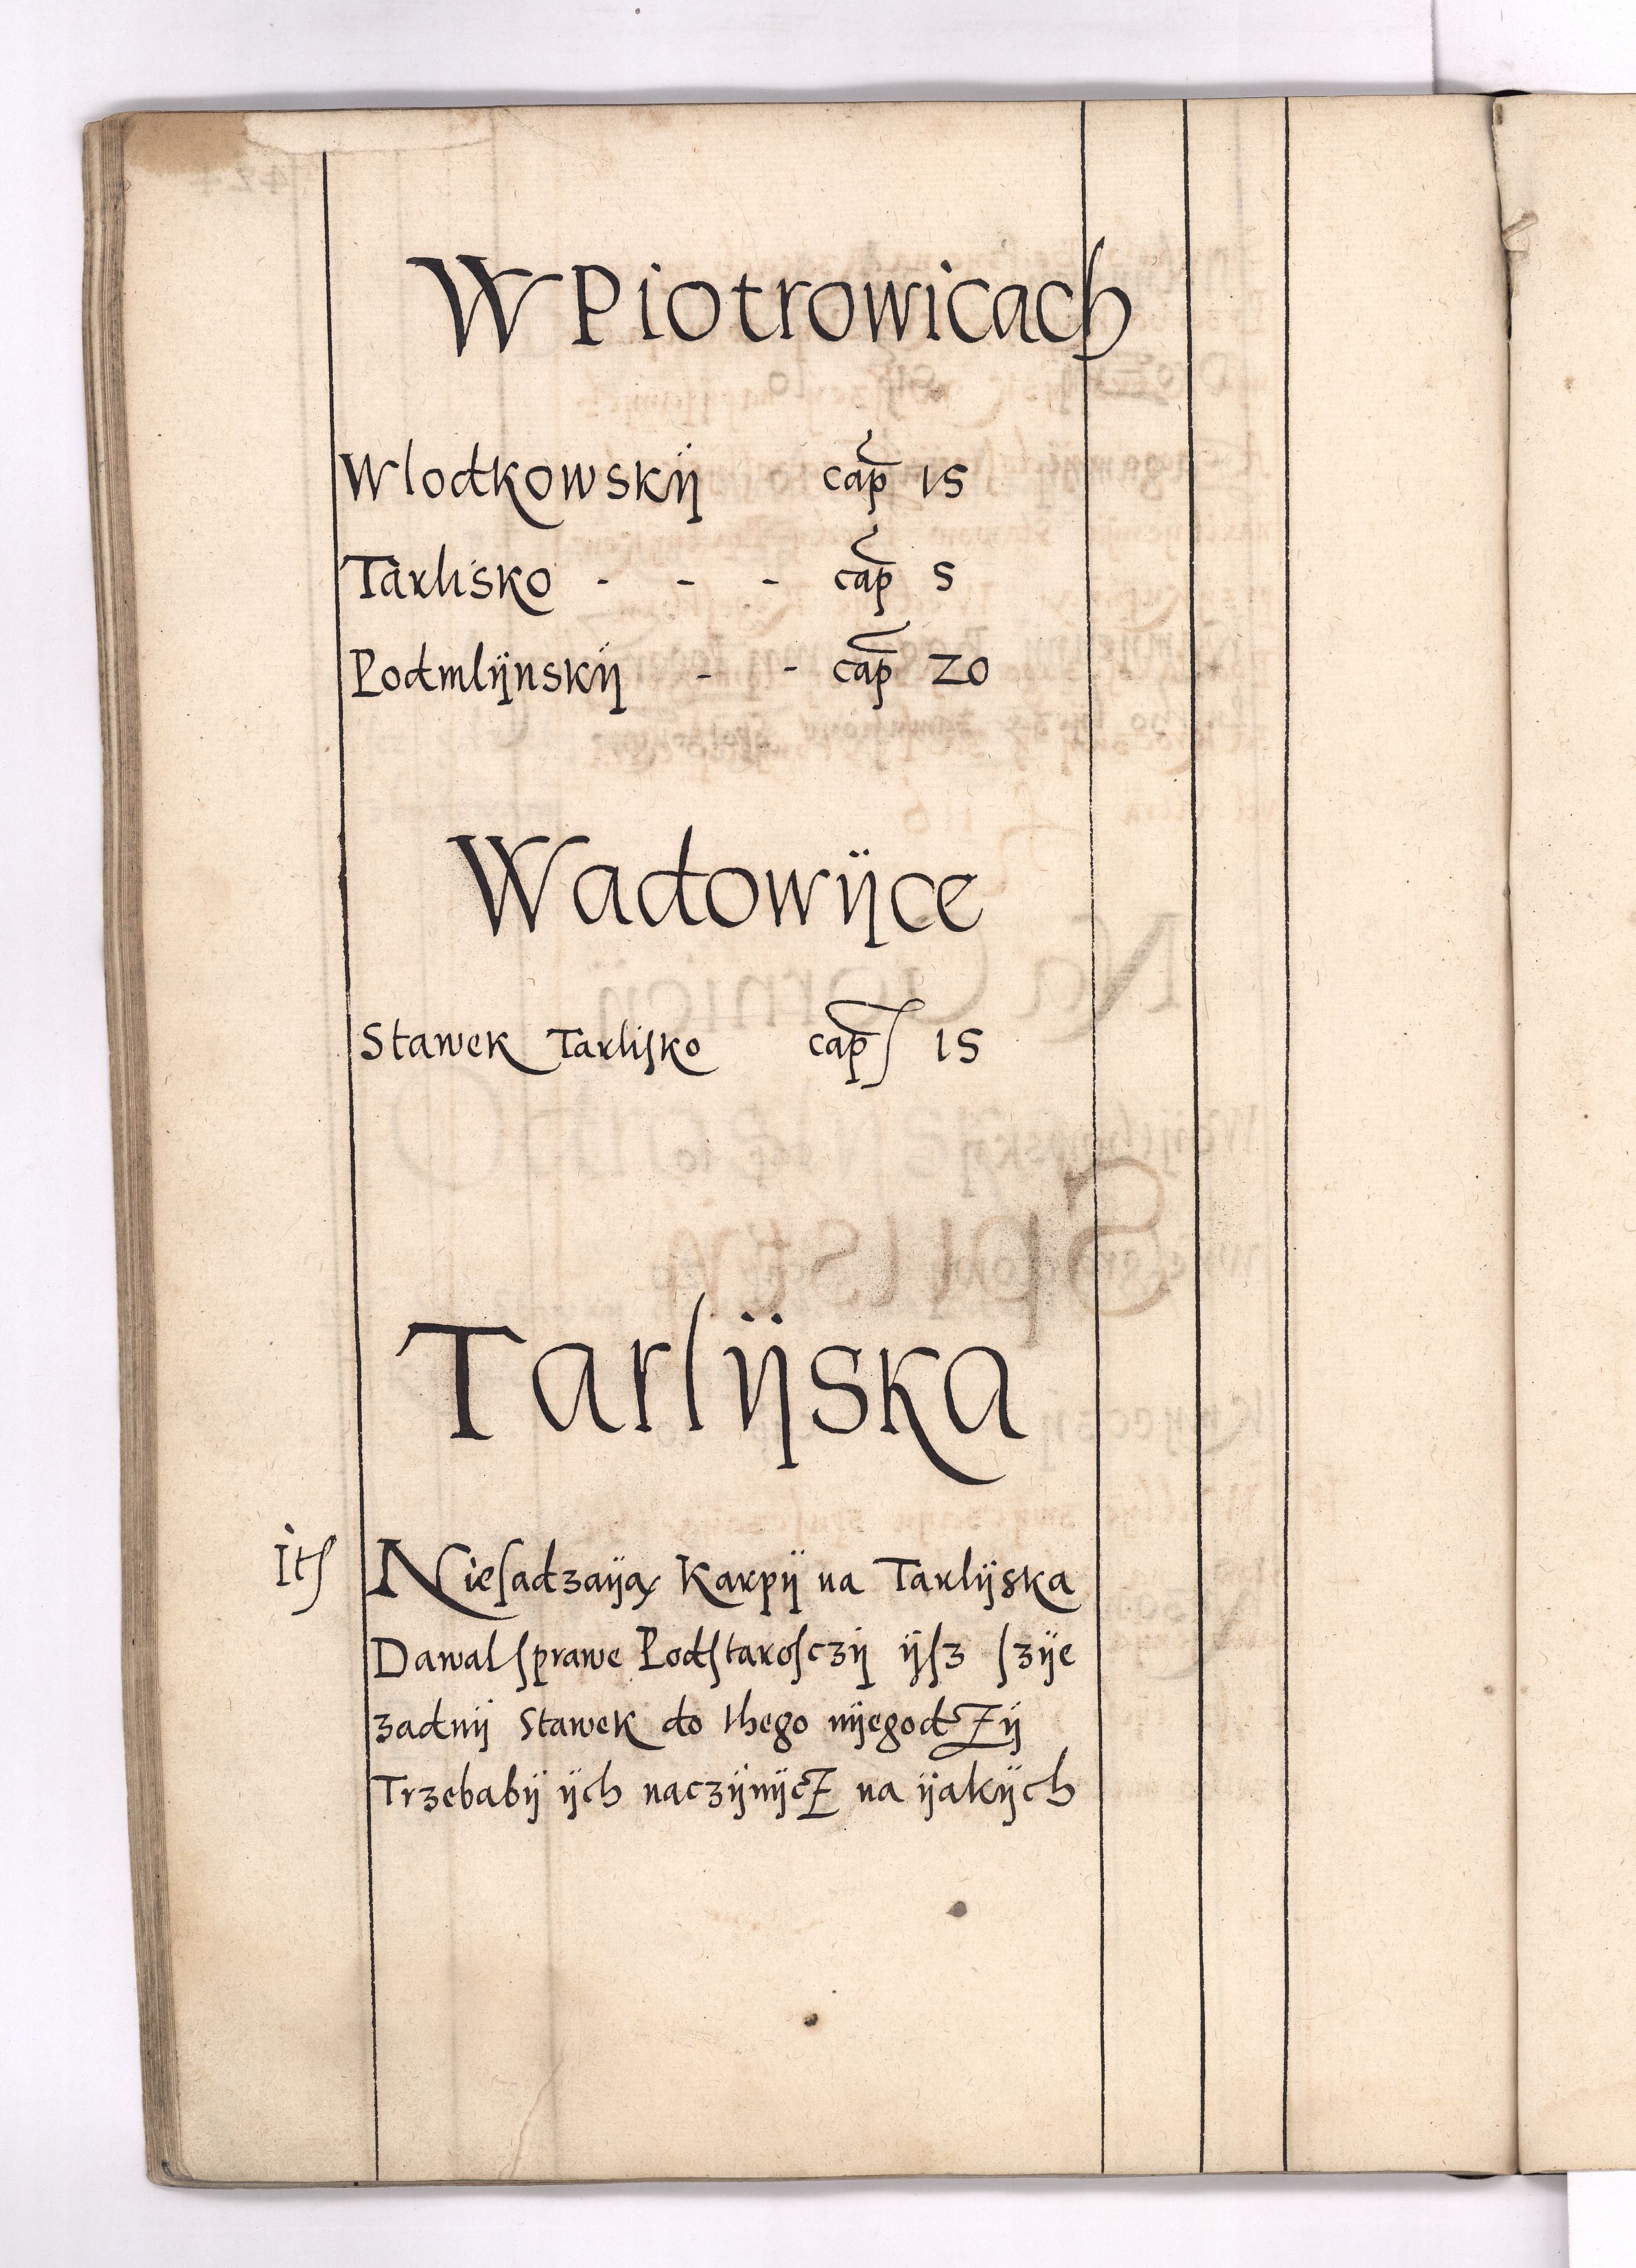 W Piotrowicach
Wlodkowskij cap 15
Tarlisko - - - cap 5
Podmlijnskij - - cap 20
Wadowijce
Stawek Tarlisko cap 15
Tarlijska
It Niesadzaija Karpij na Tarlijska
Dawal sprawe Podstarosczij ijsz szije
zadnij Stawek do thego nijegodzij
Trzebabij ijch naczijnijcz na ijakijch